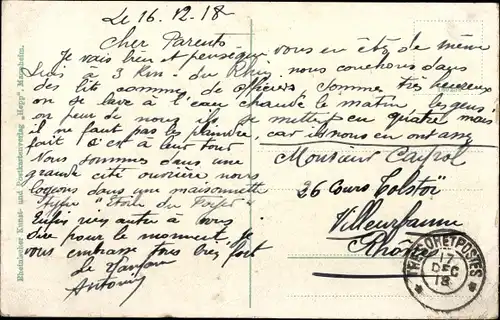 Le 16.12.18
Cher Parents
Je vais bien et pense que vous en êtes de même
Suis à 3 Km du Rhin, nous couchons dans
des lits comme de officiers, somme très heureux
on se lave à l'eau chaude le matin, les gens
on peur de nous ils se mettent en quatre mais
il ne faut pas les plaindre, car ils nous en ont assez
fait c'est à leur tour
Nous sommes dans une
grande cité ouvrière nous
logeons dans une maisonnette
type "Etoile du
rien autre à vous
dire pour le moment. Je
vous embrasse tous bien fort
Antonin
Monsieur Cayrol
26 Cours Tolstoï
Villeurbanne
Rhône
TRESOR ET POSTES
17
DEC
18
Rheinischer Kunst- und Postkartenverlag „Hepp", Mannheim.